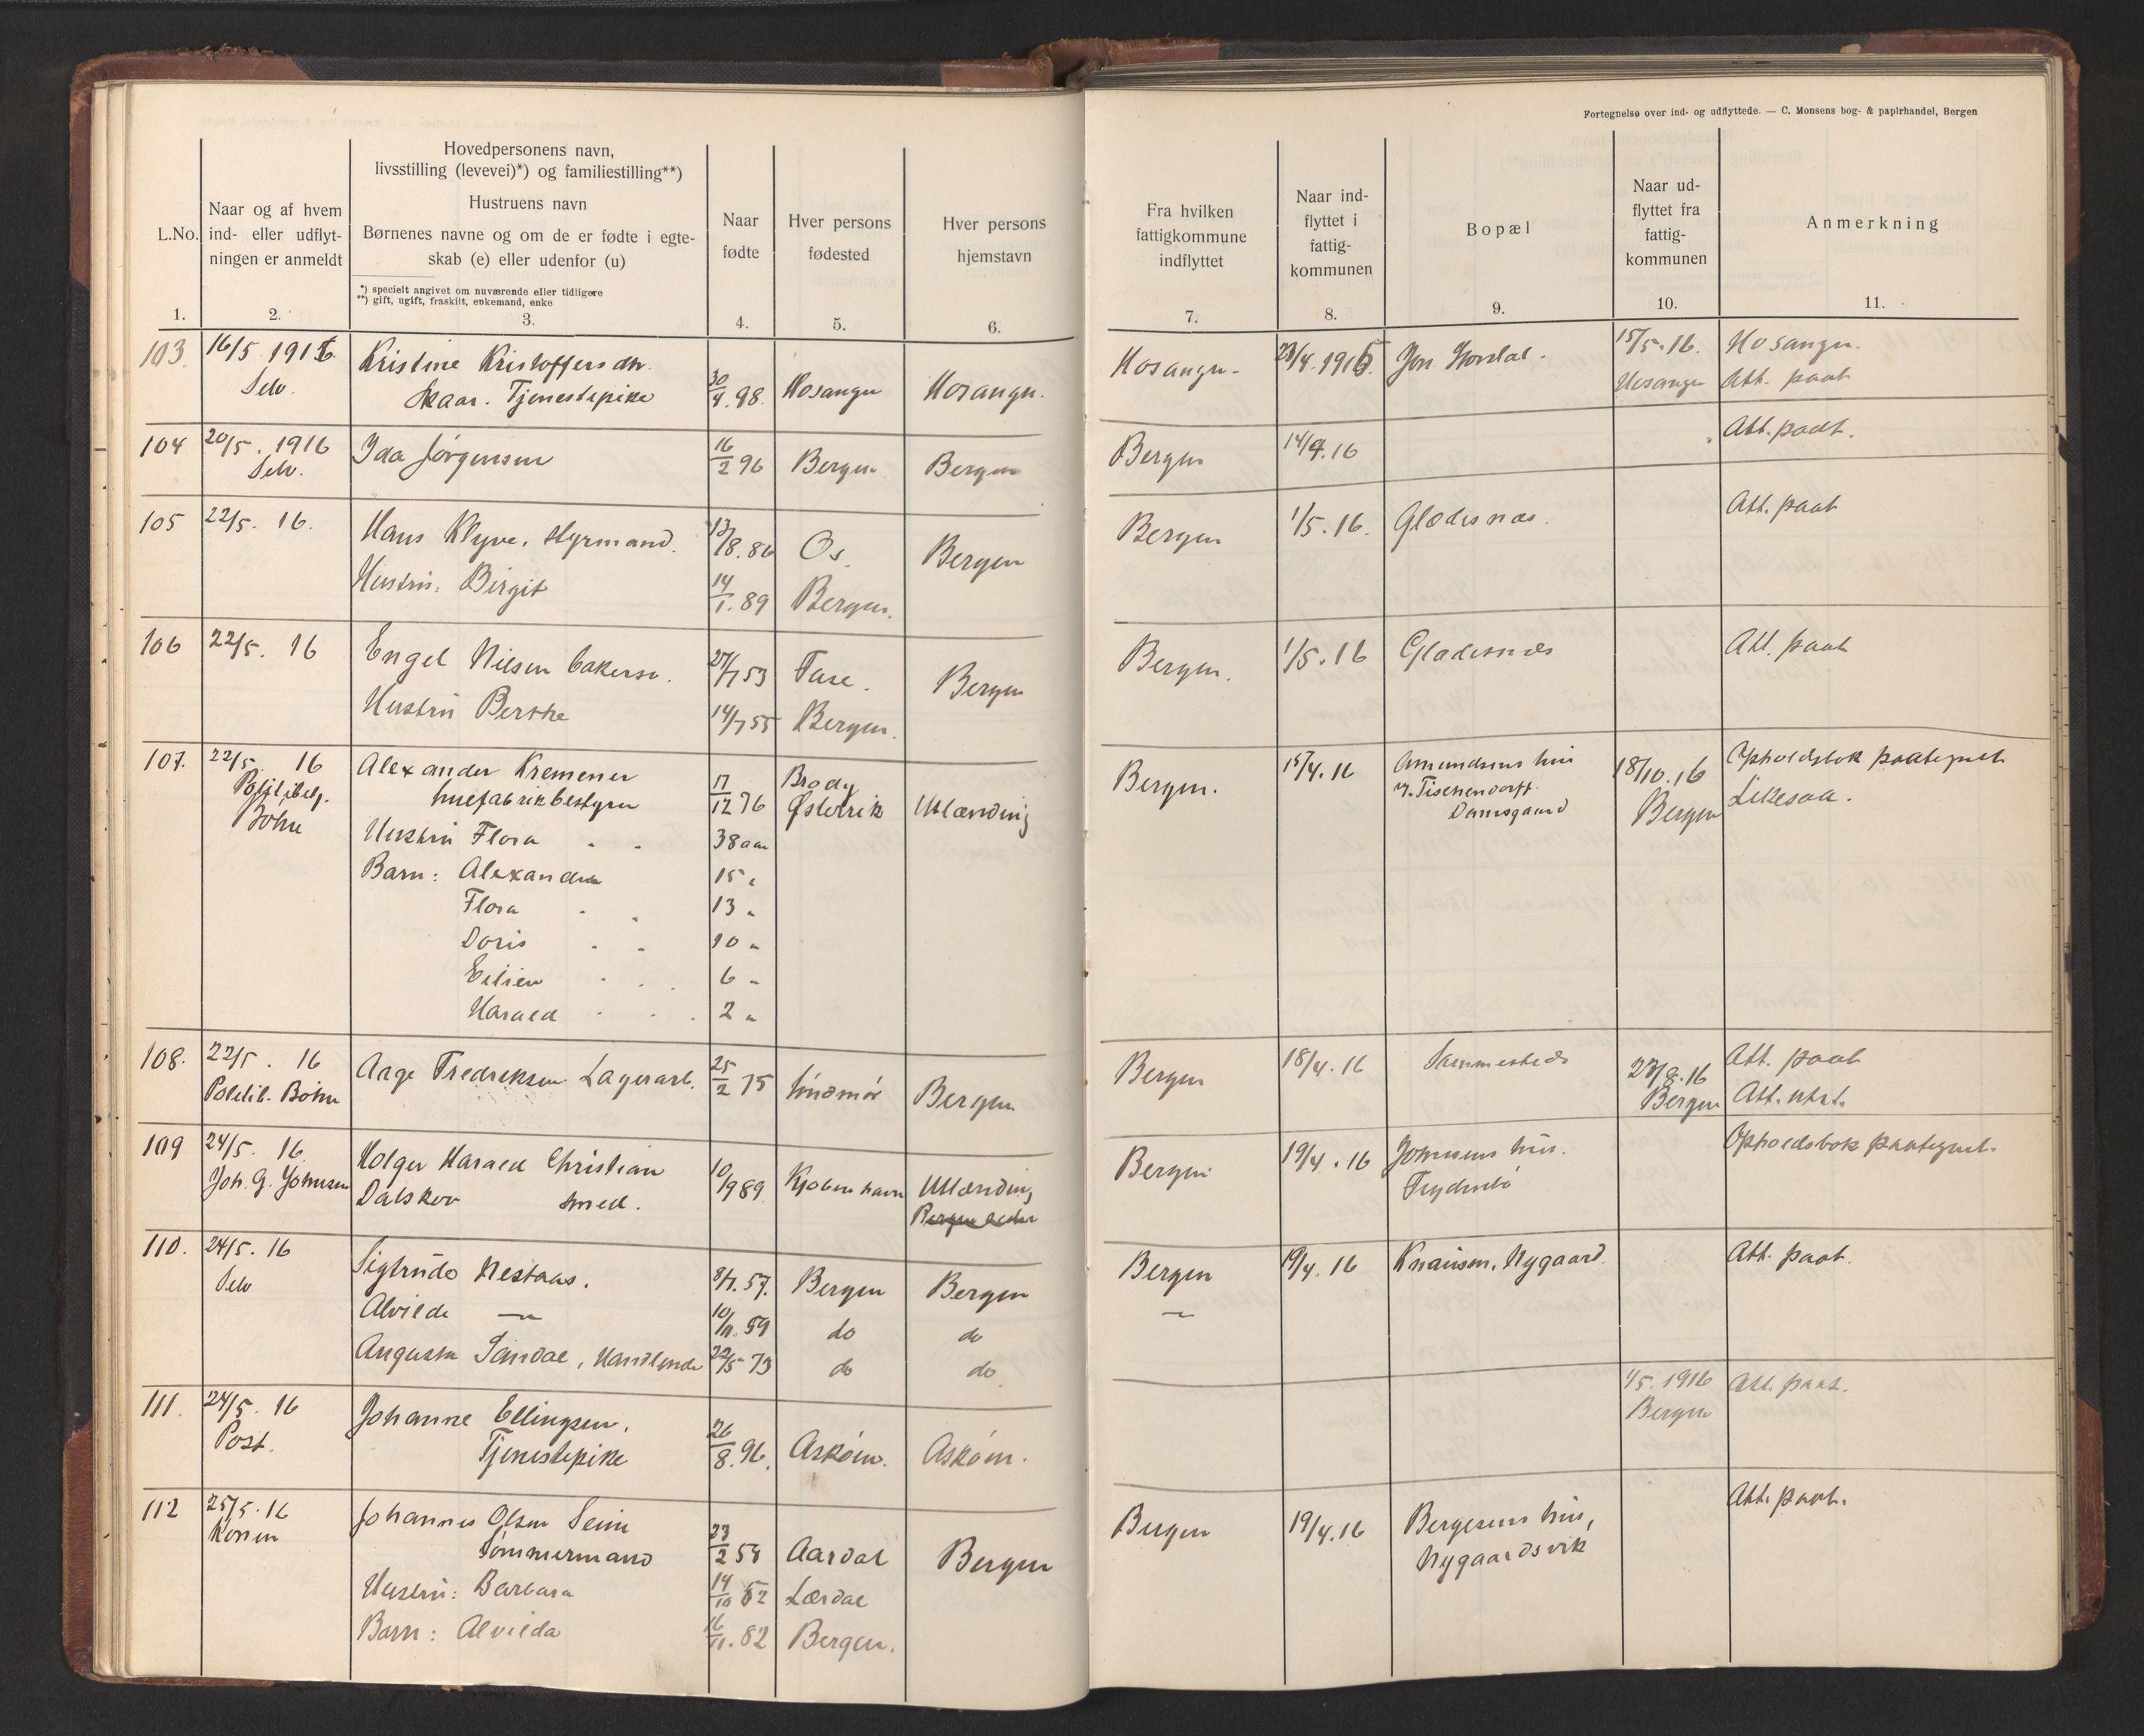 Fortegnelse over ind- og udflyttede. — C. Monsens bog- & papirhandel, Bergen
L.No.
1.
Naar og af hvem
ind- eller udflyt-
ningen er anmeldt
2.
Hovedpersonens navn,
livsstilling (levevei)*) og familiestilling**)
Hustruens navn
Børnenes navne og om de er fødte i egte-
skab (e) eller udenfor (u)
*) specielt angivet om nuværende eller tidligere
**) gift, ugift, fraskilt, enkemand, enke
3.
Naar
fødte
4.
Hver persons
fødested
5.
Hver persons
hjemstavn
6.
Fra hvilken
fattigkommune
indflyttet
7.
Naar ind-
flyttet i
fattig-
kommunen
8.
Bopæl
9.
Naar ud-
flyttet fra
fattig-
kommunen
10.
Anmerkning
11.
103 16/5 1916 Kristine Kristoffersdtr. Hosanger 23/4.1916 15/5.16. Hosanger.
Selv. Skaar. Tjenestepike 30/4.98. Hosanger Hosanger. Hosanger Att. paat
104 20/5. 1916 Ida Jørgensen 16/2 96 Bergen Bergen Bergen 14/4.16 Att. paat.
Selv.
105 22/5. 16. Hans Klyve, styrmand. 13/8.86 Os. Bergen Bergen 1/5.16. Gladesnæs. Att. paat
Hustru: Birgit 14/1.89 Bergen.
106 22/5. 16 Engel Nilsen 27/7 53 Bergen Bergen. 1/5.16 Gladesnæs Att. paat
Hustru Berthe 14/7 55 Bergen.
107. 22/5 16 Alexander Kremener 17/12 76 Brody Bergen. 15/4.16 Amundsens hus 18/10.16 Opholdsbok paategnet
Politibetj. huefabrikbestyrer Østerrik Utlænding v. Tischendorff Bergen Likesaa.
Böhn Damsgaard
Hustru Flora 38 aar
Barn: Alexander 15 "
Flora 13 "
Doris 10 "
Eilien 6 "
Harald 2 "
108. 22/5. 16 Aage Fredriksen Lagerarb. 25/2 75 Søndmør Bergen Bergen 18/4.16 Sammesteds 23/8.16 Att. paat
Politib. Böhn Bergen Att. utst.
109 24/5. 16. Holger Harald Christian 10/9 89 Kjøbenhavn Utlænding Bergen 19/4.16 Johnsens hus. Opholdsbok paategnet.
Joh. G. Johnsen Dalskov smed. Frydenbö
110. 24/5. 16 Sigtrude Nestaas. 8/1.57. Bergen Bergen Bergen 19/4.16 Knausen, Nygaard. Att. paat.
Selv Alvilde — 10/11.59 do do —
Augusta Sandal, Handlende 22/5 73 do do
111. 24/5. 16 Johanne Ellingsen, 26/8.96. Askøen. Askøen. 1/5.1916 Att. paat.
Post. Tjenestepike Bergen
112 25/5.16 Johannes Olsen Seim 23/2 54 Aardal Bergen Bergen 19/4.16 Bergesens hus, Att. paat.
Konen Tømmermand Nygaardsvik
Hustru: Barbara 14/10 52 Lærdal
Barn: Alvilda 16/11.82 Bergen.